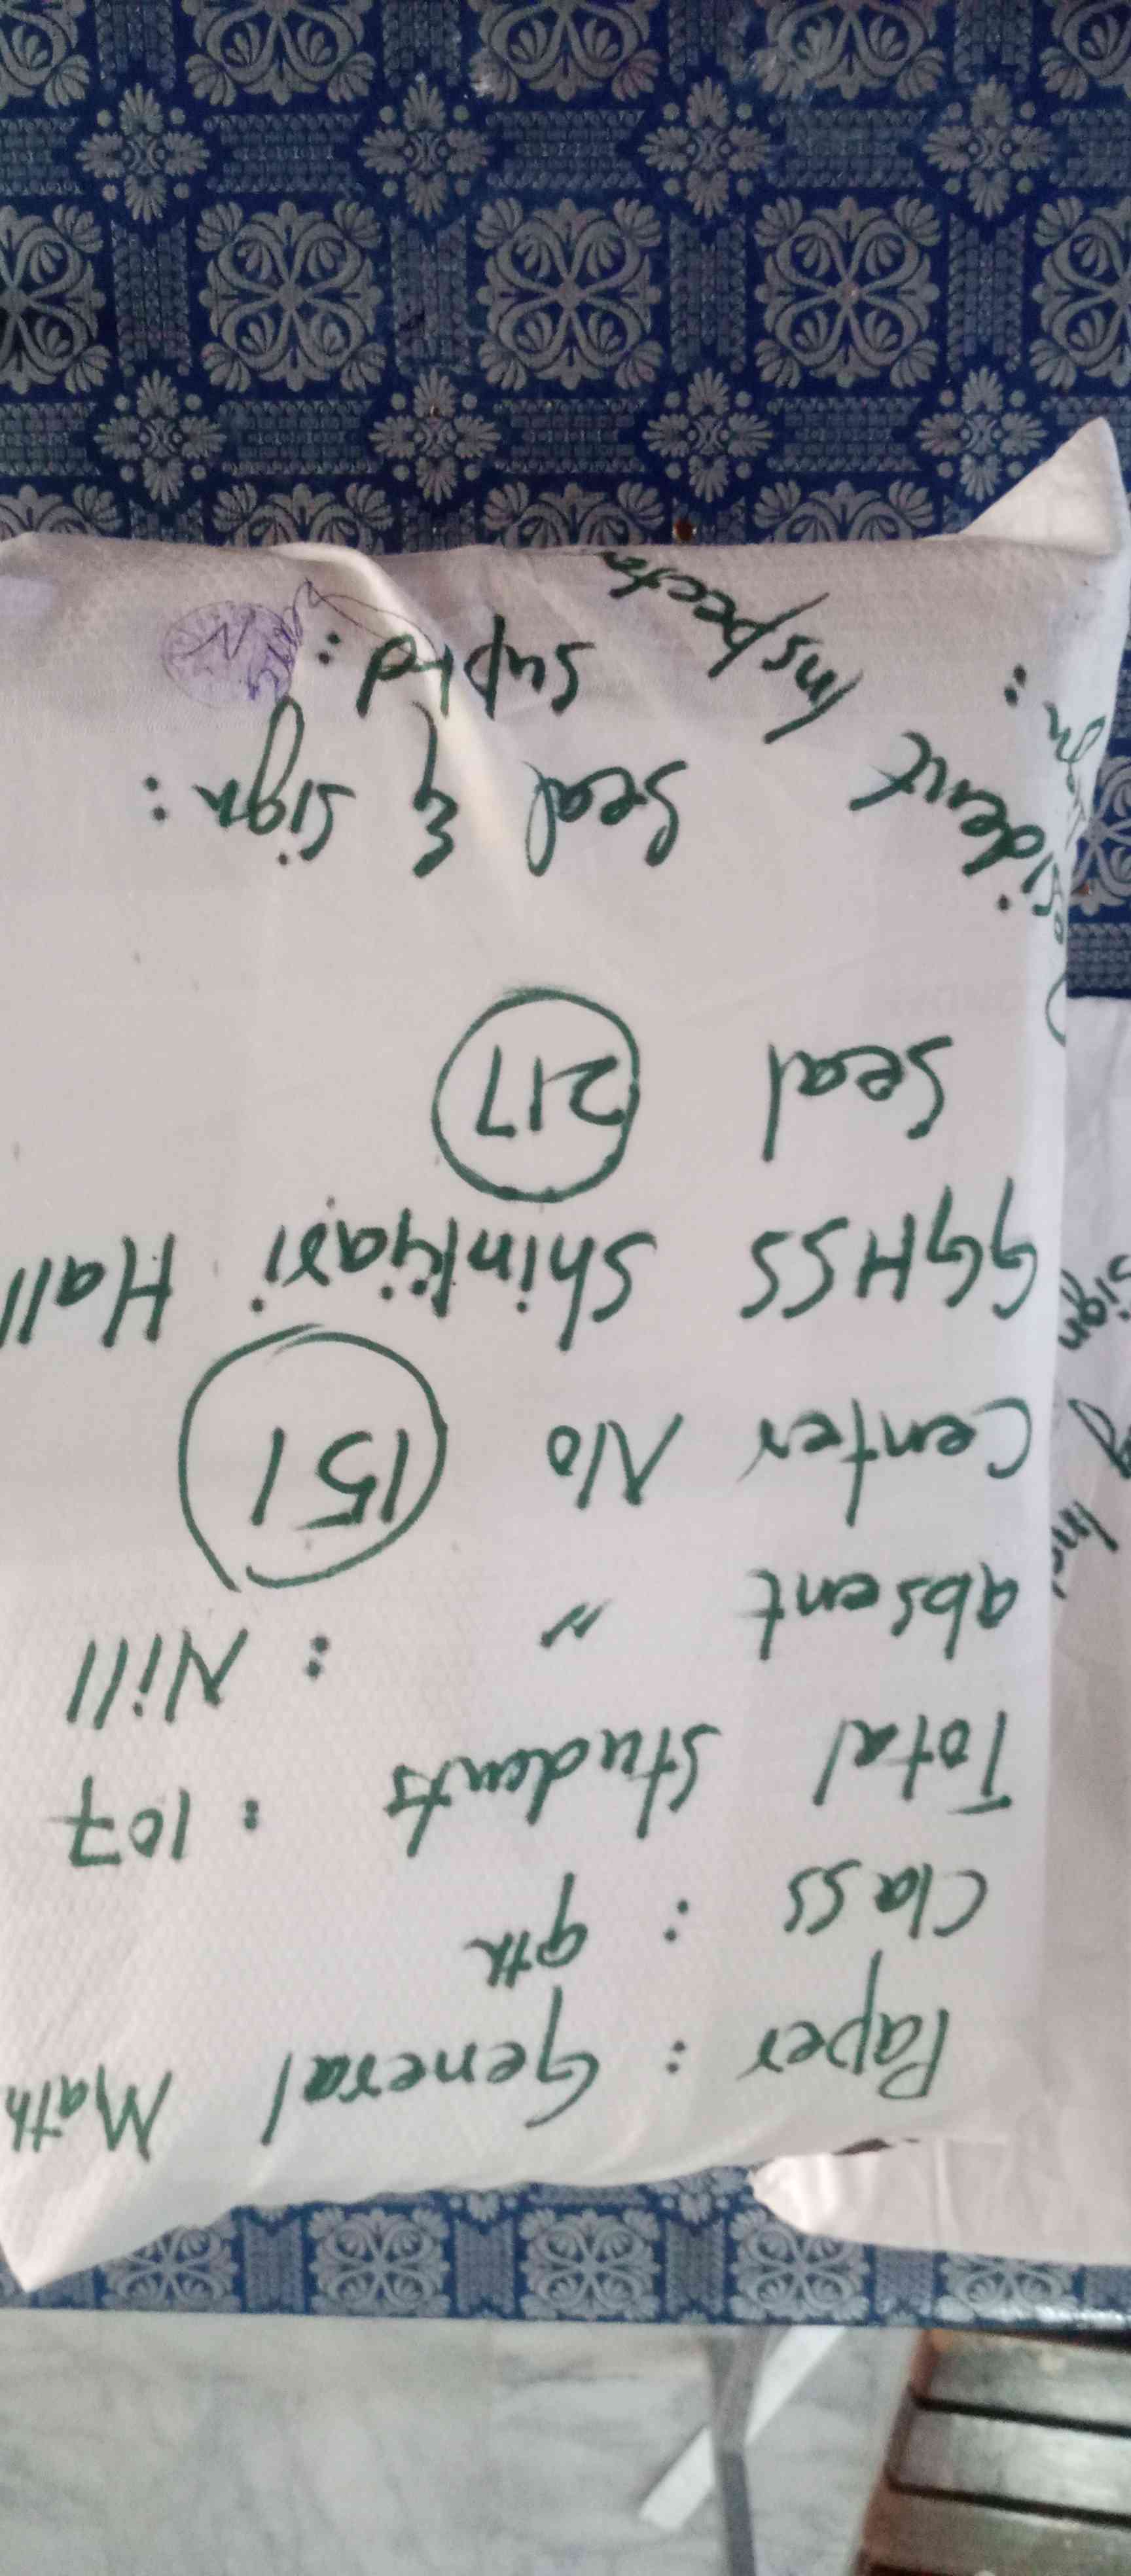 Paper : General Math
Class : 9th
Total Students : 107
absent " : Nill
Center No 151
GGHSS Shinkyari Hall
Seal 217
Seal & Sign :
Suptd :
Inspector
Sign